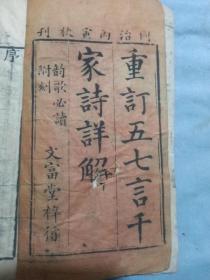 同治丙寅秋刊
重訂五七言千
家詩詳解
韵歌必讀
附刻
文富堂梓行
序